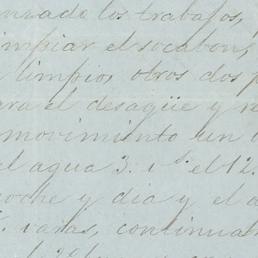 los trabajos,
limpiar el socabon,
limpio, otros dos
el desagüe y
movimiento un
el agua 3. el 12.
noche y dia y el
varas, continua